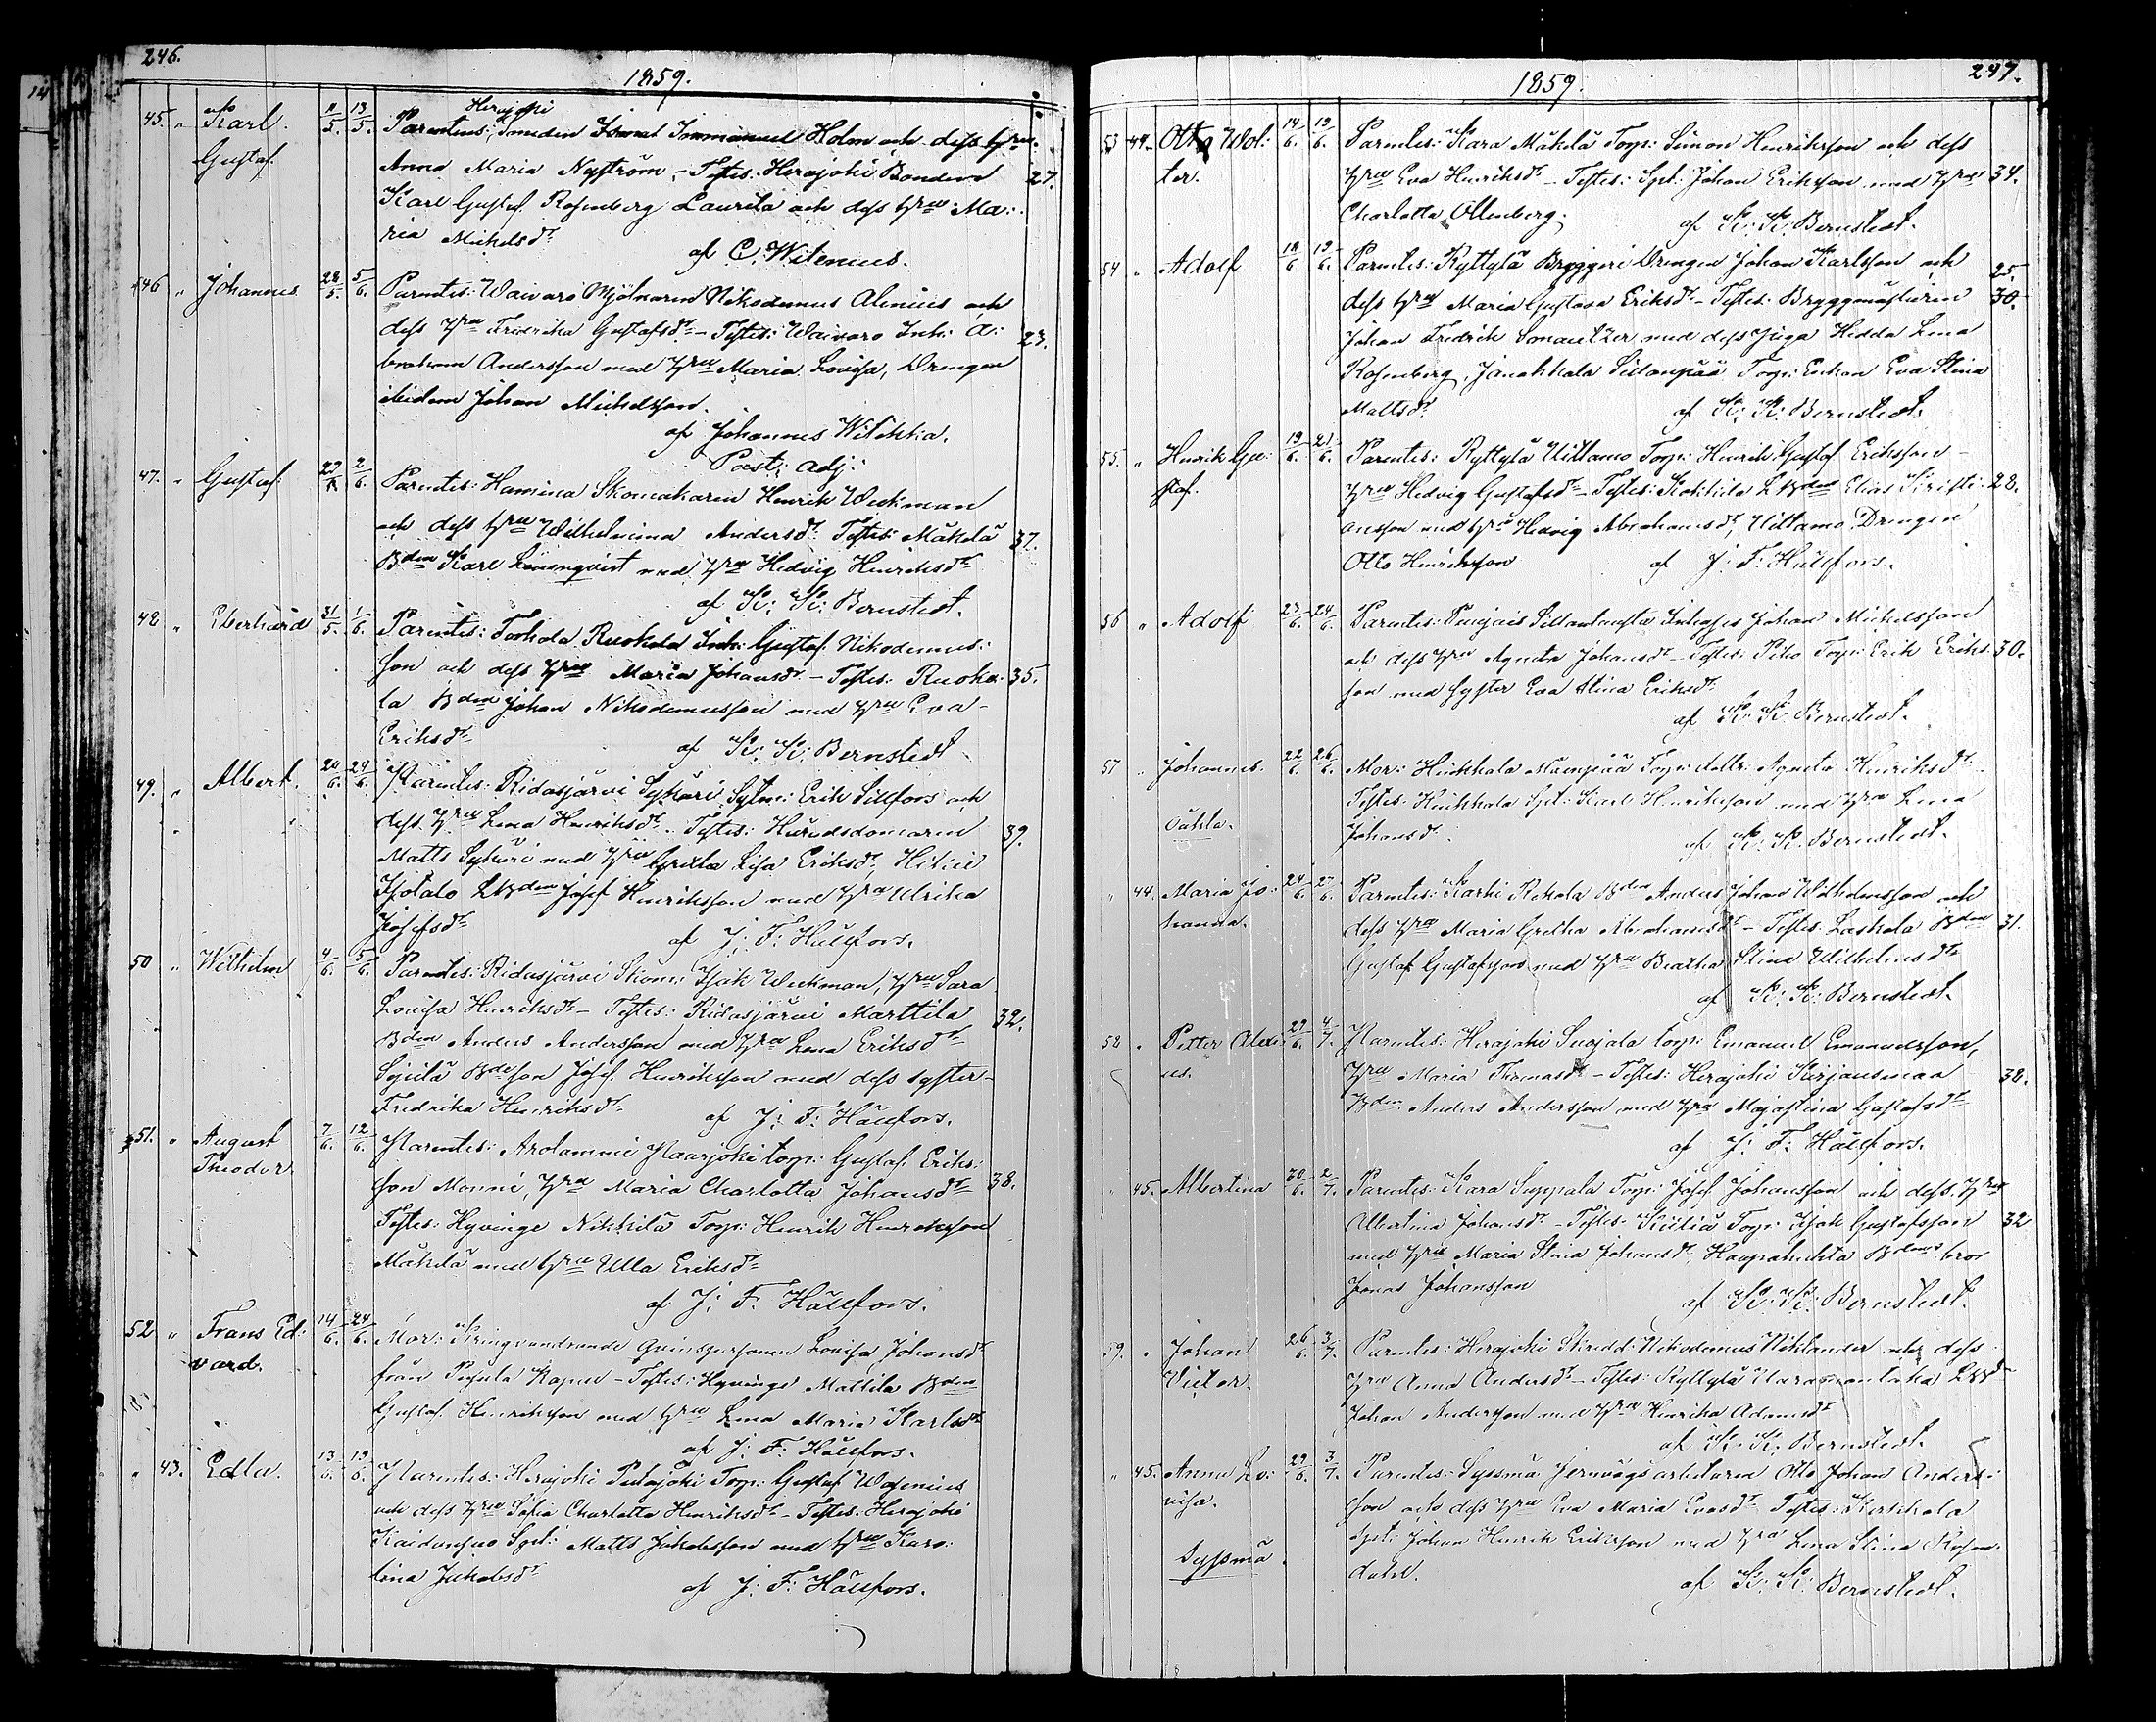 246.
1859.
45. " Karl Gustaf. 11/5. 13/5. Parentes: Herajoki Smeden Ismael Immanuel Holm och dess hru
Anna Maria Nyström, - Testes: Herajoki Bonden 27.
Karl Gustaf Rosenberg Laurila och dess hru Ma:
ria Michelsdr
af C. Witenius.
46 " Johannes 28/5. 5/6. Parentes: Waivaro Mjölnaren Nikodemus Alenius och
dess hru Fredrika Gustafsdr - Testes: Waivaro Inh: A: 23.
braham Andersson med hru Maria Lovisa, Drengen
ibidem Johan Michelsson.
af Johannes Wilskka.
Past: adj:
47. " Gustaf 29/5 2/6. Parentes: Hamina Skomakaren Henrik Weckman
och dess hru Wilhelmina Andersdr Testes: Mäkelä 37.
Bden Karl Lönnqvist med hru Hedvig Henriksdr
af K: K: Bernstedt.
48 " Eberhard 31/5. 1/6. Parentes: Torhola Ruokola Inh: Gustaf Nikodemus:
son och dess hru Maria Johansdr - Testes: Ruoko: 35.
la Bden Johan Nikodemusson med hru Eva
Eriksdr
af K: K: Bernstedt
49. " Albert. 20/6. 24/6. Parentes: Ridasjärvi Sykäri Sytn: Erik Sillfors och
dess hru Lena Henriksdr. Testes: Häradsdomaren 39.
Matts Sykäri med hru Greta Lisa Eriksdr, Hikiä
Isotalo LBden Josef Henriksson med hru Ulrika
Josefsdr
af J: F: Hällfors.
50 " Wilhelm 4/6. 5/6. Parentes: Ridasjärvi Skom: Isak Weckman, hru Sara
Lovisa Henriksdr - Testes: Ridasjärvi Marttila 32.
Bden Anders Andersson med hru Lena Eriksdr
Sejulä Bdeson Josef Henriksson med dess syster
Fredrika Henriksdr
af J: F: Hällfors.
51. " August Theodor 7/6. 12/6. Parentes: Arolammi Paarjoki torp: Gustaf Eriks:
son Monni, hru Maria Charlotta Johansdr 38.
Testes: Hyvinge Nikkilä Torp: Henrik Henriksson
Mäkelä med hru Ulla Eriksdr
af J: F: Hällfors.
52 " Frans Ed:
vard. 14/6. 24/6. Mor: Kringvandrande Qvinspersonen Lovisa Johansdr
från Pusula - Testes: Hyvinge Mattila Bden
Gustaf Henriksson med hru Lena Maria Karlsdr
af J: F: Hällfors.
" 43. Edla. 13/6. 19/6. Parentes: Herajoki Torp: Gustaf Wegenius
och dess hru Sofia Charlotta Henriksdr - Testes: Herajoki
Kaidansuo Spl: Matts Jakobsson med hru Karo:
lina Jakobsdr
af J: F: Hällfors.
1859.
247.
53 " Otto Wol:
ter. 14/6. 19/6. Parentes: Kara Mäkelä Torp: Simon Henriksson och dess
hru Eva Henriksdr - Testes: Spl: Johan Eriksson med hru 34.
Charlotta Ollenberg.
af K: K: Bernstedt.
54 " Adolf 18/6 19/6. Parentes: Ryttylä Bryggeri Drengen Johan Karlsson och 25.
dess hru Maria Gustava Eriksdr - Testes: Bryggmästaren 30.
Johan Fredrik med dess piga Hedda Lena
Rosenberg, Janakkala Sillanpää Torp: Enkan Eva Stina
Mattsdr
af K: K: Bernstedt.
55. " Henrik Gu:
staf. 19/6. 21/6. Parentes: Ryttylä Uittamo Torp: Henrik Gustaf Eriksson -
hru Hedvig Gustafsdr - Testes: Kokkila LBden Elias Kristi: 28.
ansson med hru Hedvig Abrahamsdr, Uittamo Drengen
Otto Henriksson
af J: F: Hällfors.
56 " Adolf 23/6. 24/6. Parentes: Punjais Sillantausta Inhyses Johan Michelsson
och dess hru Agneta Johansdr - Testes: Torp: Erik Eriks: 30.
son med syster Eva Stina Eriksdr
af K: K: Bernstedt.
57 " Johannes. 22/6. 26/6. Mor: Hirkkala Mäenpää Torp: dottr Agneta Henriksdr -
Testes: Hirkkala Spl: Karl Henriksson med hru Lena
oäkta. Johansdr.
af K: K: Bernstedt.
" 44. Maria Jo:
hanna. 24/6. 27/6. Parentes: Karhi Rekola Bden Anders Johan Wilhelmsson och
dess hru Maria Gretha Abrahamsdr - Testes: Laskola Bden 31.
Gustaf Gustafsson med hru Beatha Stina Wilhelmsdr
af K: K: Bernstedt.
58 " Petter Alexi:
us. 29/6. 4/7. Parentes: Herajoki Suojala torp: Emanuel Emanuelsson,
hru Maria Thomasdr - Testes: Herajoki Kirjansmaa 38.
Bden Anders Andersson med hru Majastina Gustafsdr
af J: F: Hällfors.
" 45. Albertina 30/6. 2/7. Parentes: Kara Seppälä Torp: Josef Johansson och dess hru
Albertina Johansdr - Testes: Torp: Isak Gustafsson 32
med hru Maria Stina Johansdr, Haapahuhta Bdens bror
Jonas Johansson
af K: K: Bernstedt.
59. " Johan
Victor. 26/6. 3/7. Parentes: Herajoki Skredd: Nikodemus Wiklander och dess
hru Anna Andersdr - Testes: Ryttylä LBd
Johan Andersson med hru Henrika Adamsdr
af K: K: Bernstedt.
" 45. Anna Lo:
visa. 29/6. 3/7. Parentes: Syssmä Jernvägsarbetaren Otto Johan Anders:
son och dess hru Eva Maria Evasdr - Testes: Kerkkola
Spl: Johan Henrik Eriksson med hru Lena Stina Rosen:
Syssmä. dahl.
af K: K: Bernstedt.